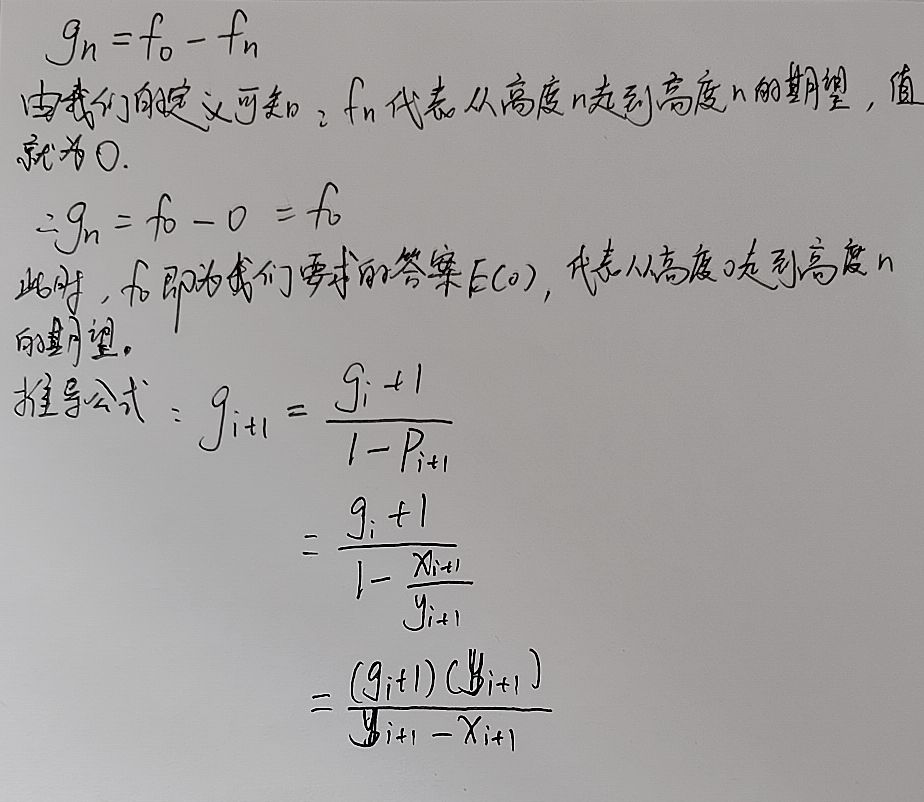 gₙ = f₀ - fₙ
由我们的定义可知：fₙ代表从高度n走到高度n的期望，值
就为0.
∴gₙ = f₀ - 0 = f₀
此时，f₀即为我们要求的答案E(0)，代表从高度0走到高度n
的期望。
推导公式：gᵢ₊₁ = (gᵢ+1)/(1-Pᵢ₊₁)
= (gᵢ+1)/(1-xᵢ₊₁/yᵢ₊₁)
= (gᵢ+1)(yᵢ₊₁)/(yᵢ₊₁-xᵢ₊₁)